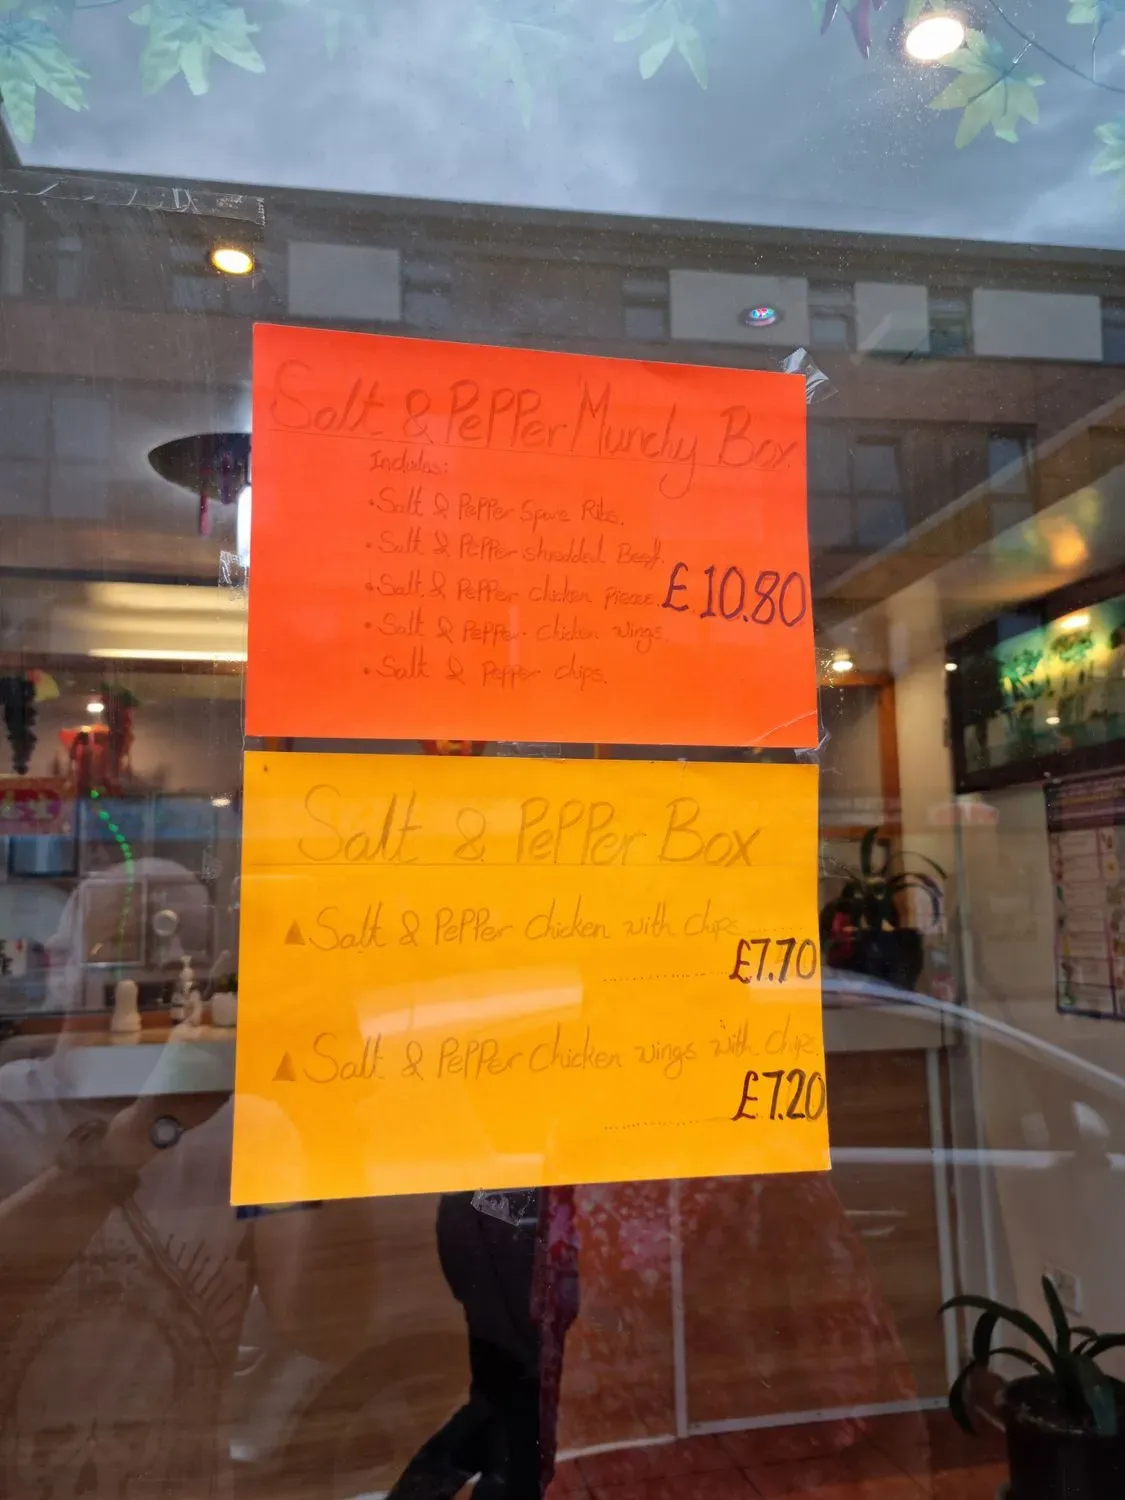 Salt & PePPer Munchy Box
Includes:
• Salt & PePPer Spare Ribs.
• Salt & PePPer shredded Beef.
• Salt & PePPer chicken pieces.
£10.80
• Salt & PePPer chicken wings.
• Salt & Pepper chips.
Salt & PePPer Box
▲ Salt & PePPer chicken with chips
£7.70
▲ Salt & PePPer chicken wings with chips.
£7.20